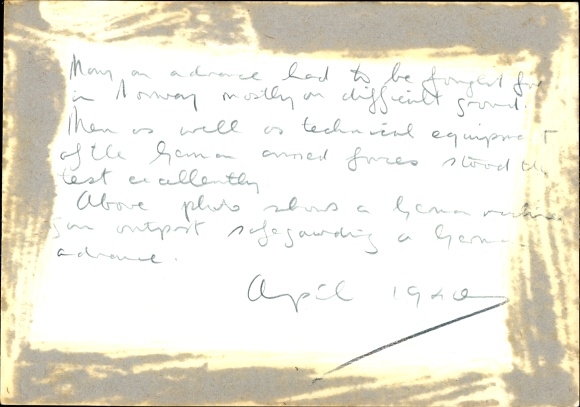 Many an advance had to be fought for
in Norway mostly on difficult ground.
Men as well as technical equipment
of the German armed forces stood the
test excellently.
Above photo shows a German machine
gun outpost safeguarding a German
advance.
April 1940